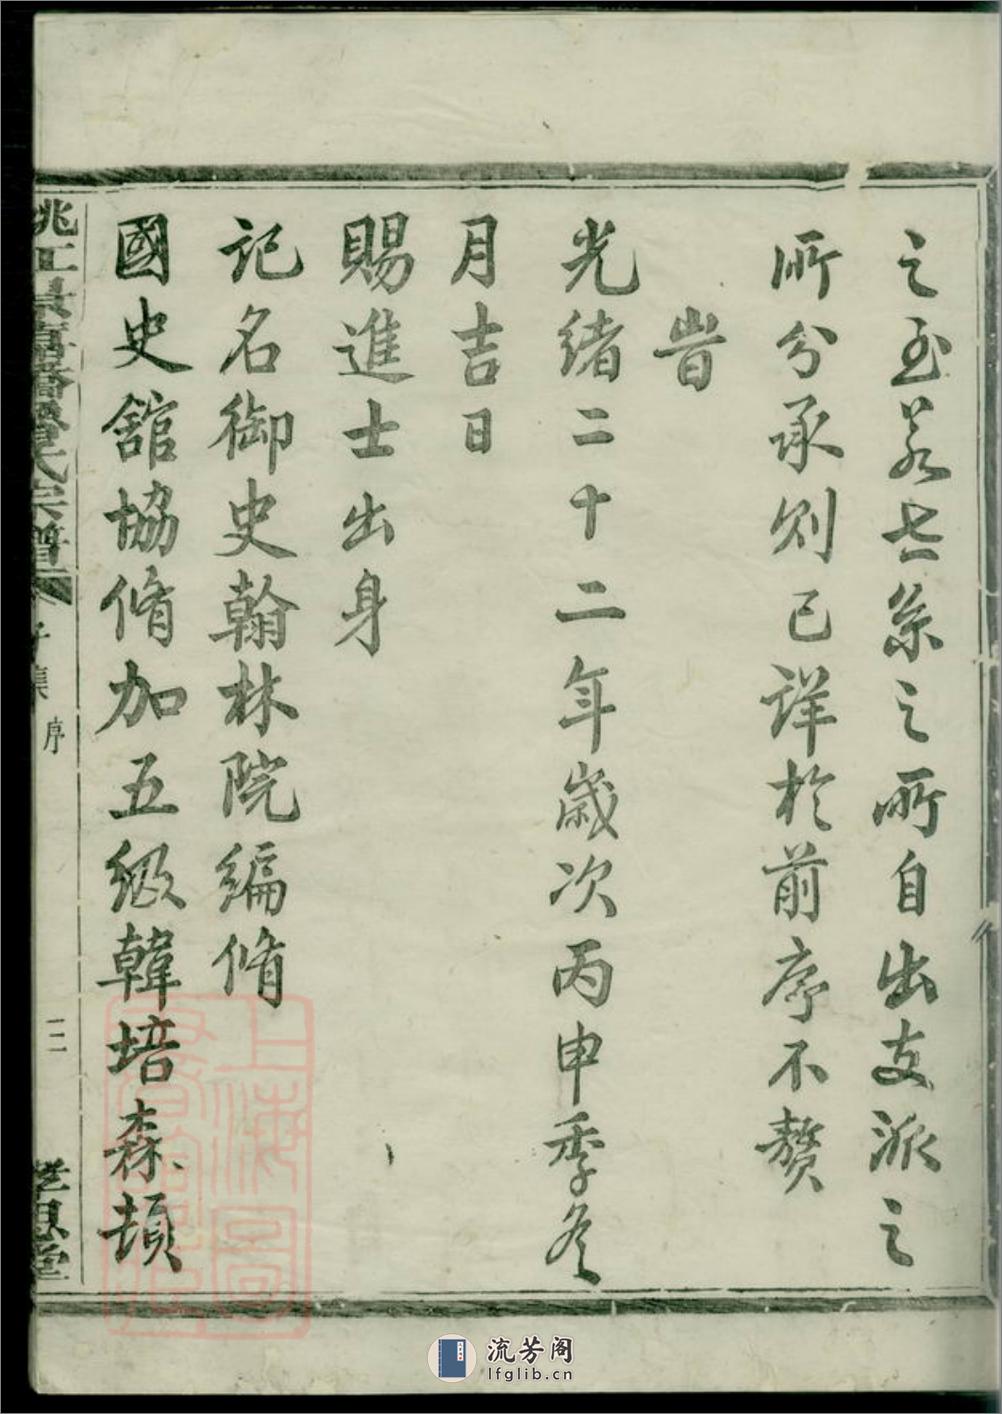 之至若世系之所自出支派之
所分承則已詳於前序不贅
旹
光緒二十二年歲次丙申季冬
月吉日
賜進士出身
記名御史翰林院編脩
國史舘協脩加五級韓培森頓
姚江
氏宗譜
子集
序
三
世思堂
上海圖書館藏
流芳阁
lfglib.cn